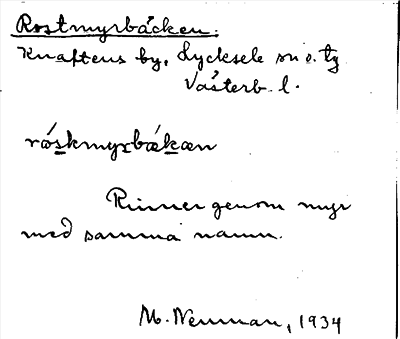 Rostmyrbäcken.
Knaftens by, Lycksele sn o. tg
Västerb. l.
råskmyrbækæn
Rinner genom myr
med samma namn.
M. Nenman, 1934